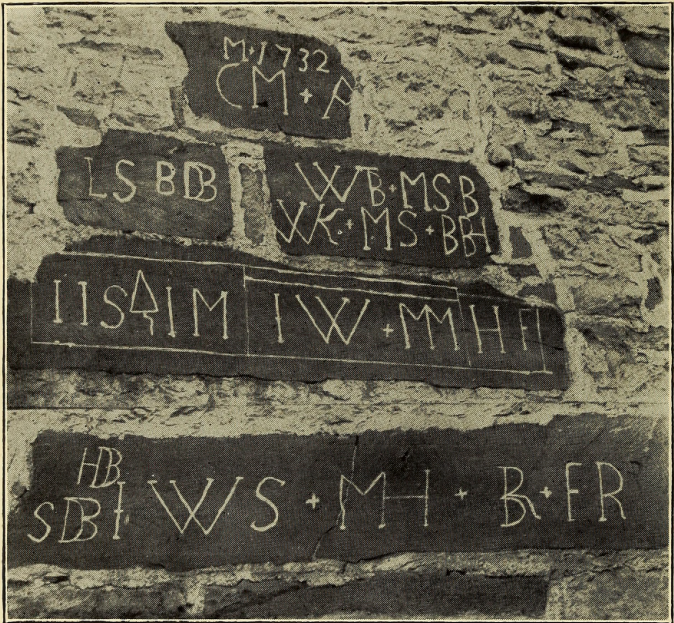 M·1732
CM+A
LS BDB
WB+MSB
WK+MS+BBH
IIS IM IW+MMH
HB
SDBI WS + MH + BR + FR